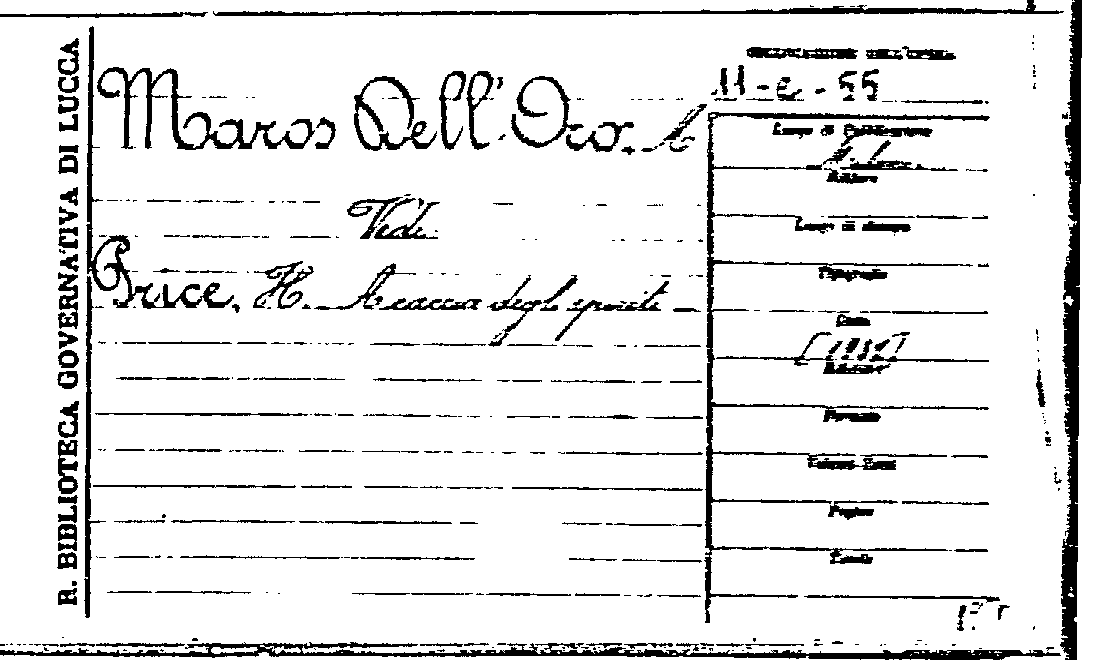 R. BIBLIOTECA GOVERNATIVA DI LUCCA
Maros Dell'Oro. A
Vedi
Price, H. A caccia degli spiriti
COLLOCAZIONE DELL'OPERA
11-e-55
Luogo di Pubblicazione
Editore
Luogo di stampa
Tipografia
Data
Edizione
Formato
Volumi
Pagine
Tavole